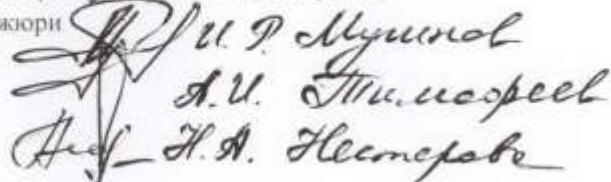 жюри И. Р. Мушнов
А. И. Тимофеев
Н. А. Нестерова